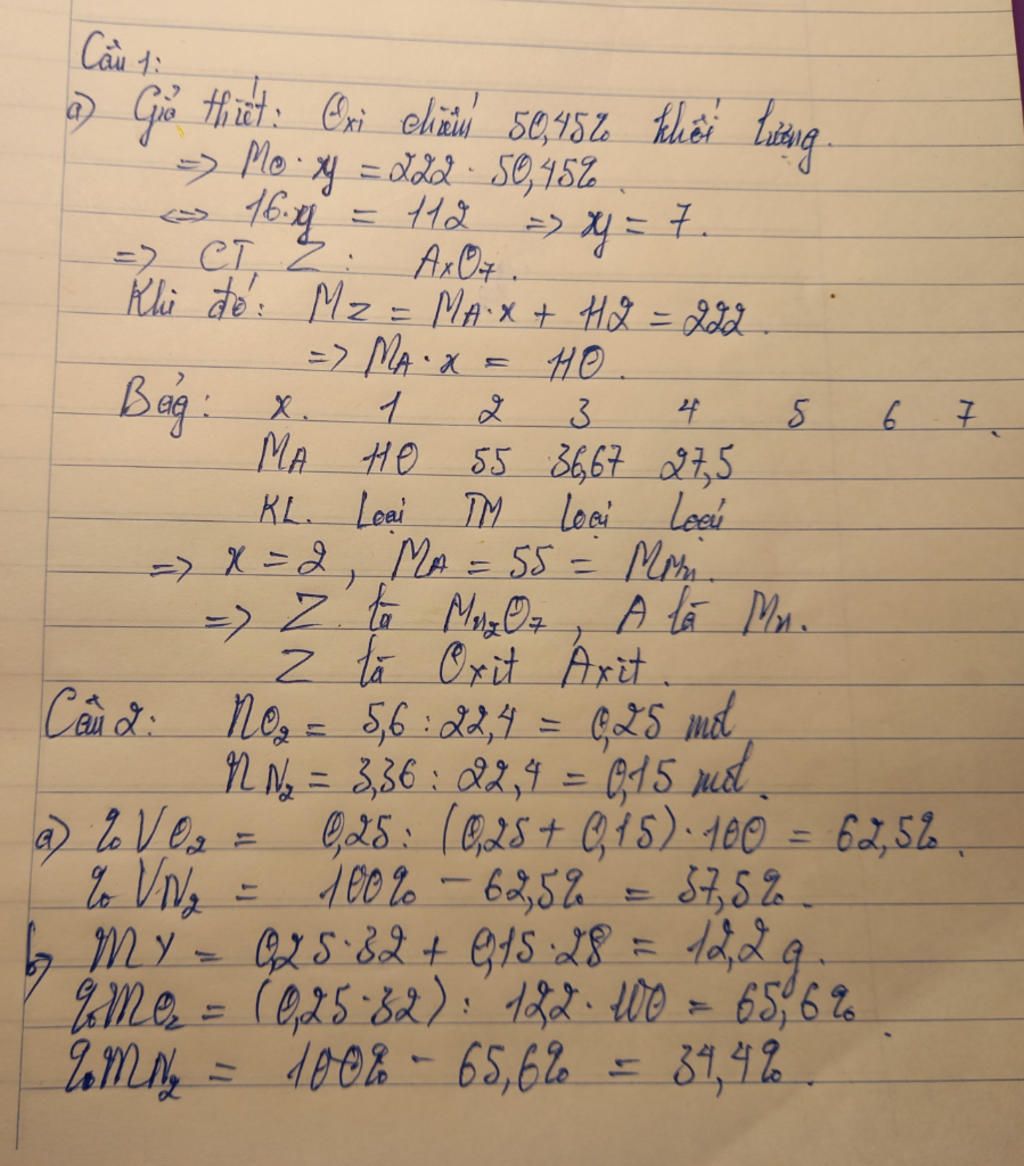 Câu 1:
a) Giả thiết: Oxi chiếm 50,45% khối lượng.
=> MO . xy = 222 . 50,45%.
<=> 16.xy = 112 => xy = 7.
=> CT Z : AxO7.
Khi đó: MZ = MA.x + 112 = 222.
=> MA.x = 110.
Bảg: x. 1 2 3 4 5 6 7.
MA 110 55 36,67 27,5
KL. Loại TM Loại Loại
=> x = 2, MA = 55 = MMn.
=> Z là Mn2O7, A là Mn.
Z là Oxit Axit.
Câu 2: nO2 = 5,6 : 22,4 = 0,25 mol
nN2 = 3,36 : 22,4 = 0,15 mol.
a) %VO2 = 0,25 : (0,25 + 0,15) . 100 = 62,5%.
%VN2 = 100% - 62,5% = 37,5%.
b) MY = 0,25.32 + 0,15.28 = 12,2 g.
%MO2 = (0,25.32) : 12,2 . 100 = 65,6%.
%MN2 = 100% - 65,6% = 34,4%.